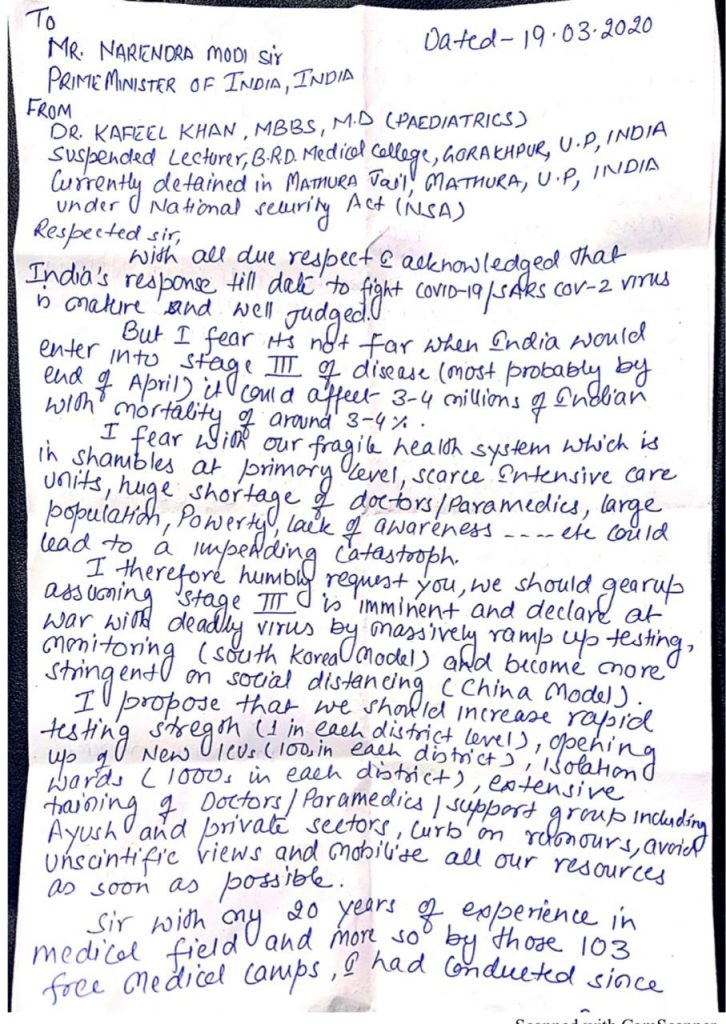 To
Dated- 19.03.2020
MR. NARENDRA MODI Sir
PRIME MINISTER OF INDIA, INDIA
FROM
DR. KAFEEL KHAN, MBBS, M.D (PAEDIATRICS)
Suspended Lecturer, B.R.D. Medical College, GORAKHPUR, U.P, INDIA
Currently detained in MATHURA Jail, MATHURA, U.P, INDIA
under National security Act (NSA)
Respected sir,
With all due respect I acknowledged that
India's response till date to fight COVID-19/SARS COV-2 virus
is mature and well judged.
But I fear its not far when India would
enter into stage III of disease (most probably by
end of April) it could affect 3-4 millions of Indian
with mortality of around 3-4%.
I fear with our fragile health system which is
in shambles at primary level, scarce Intensive care
units, huge shortage of doctors/Paramedics, large
population, Powerty, lack of awareness ---- etc could
lead to a impending Catastroph.
I therefore humbly request you, we should gearup
assuming stage III is imminent and declare at
war with deadly virus by massively ramp up testing,
monitoring (South Korea Model) and become more
stringent on social distancing (China Model).
I propose that we should increase rapid
testing stregth (1 in each district level), opening
up of New ICUs (100 in each district), Isolation
wards (1000s in each district), extensive
training of Doctors/Paramedics/support group including
Ayush and private sectors, curb on rumours, avoid
unscintific views and mobilise all our resources
as soon as possible.
Sir with my 20 years of experience in
medical field and more so by those 103
free Medical camps, I had conducted since
Scanned with CamScanner